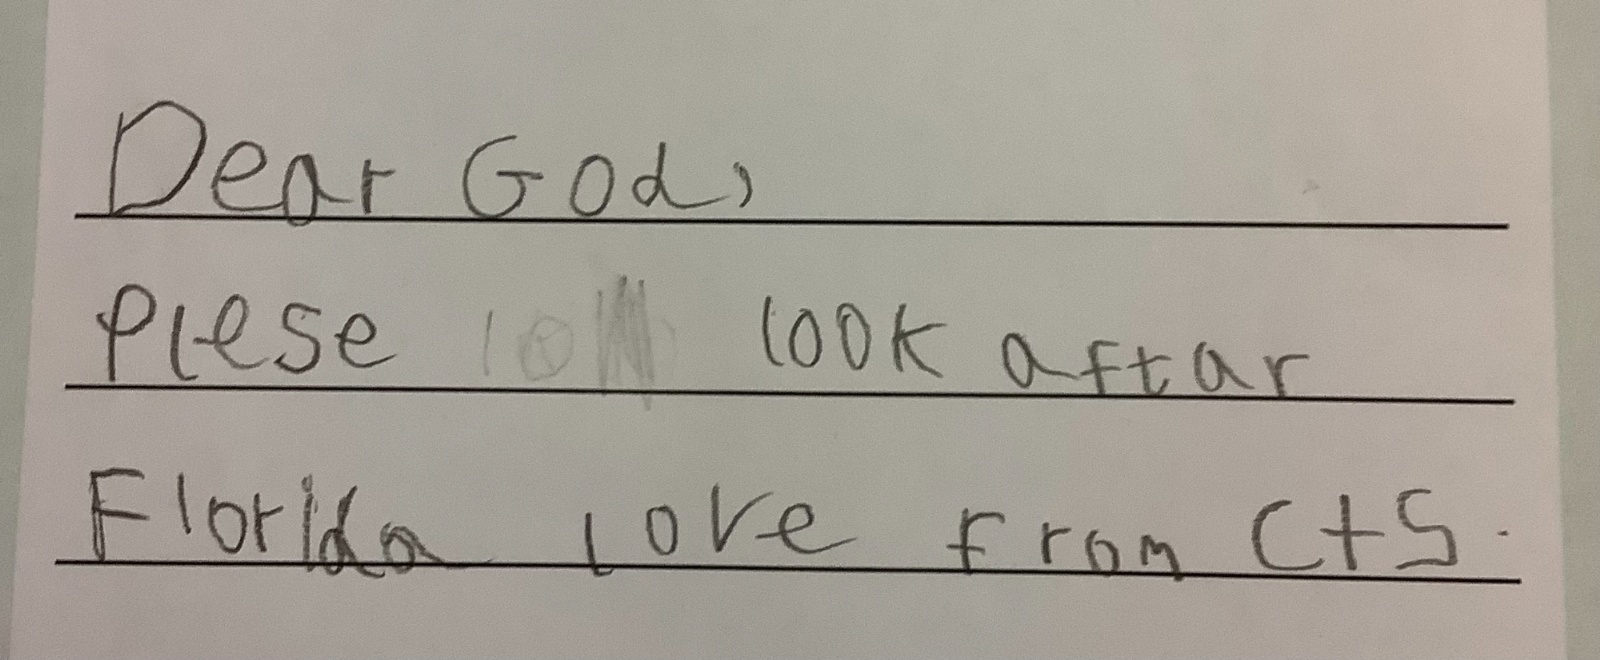 Dear God,
Plese look aftar
Florida love from C+S.